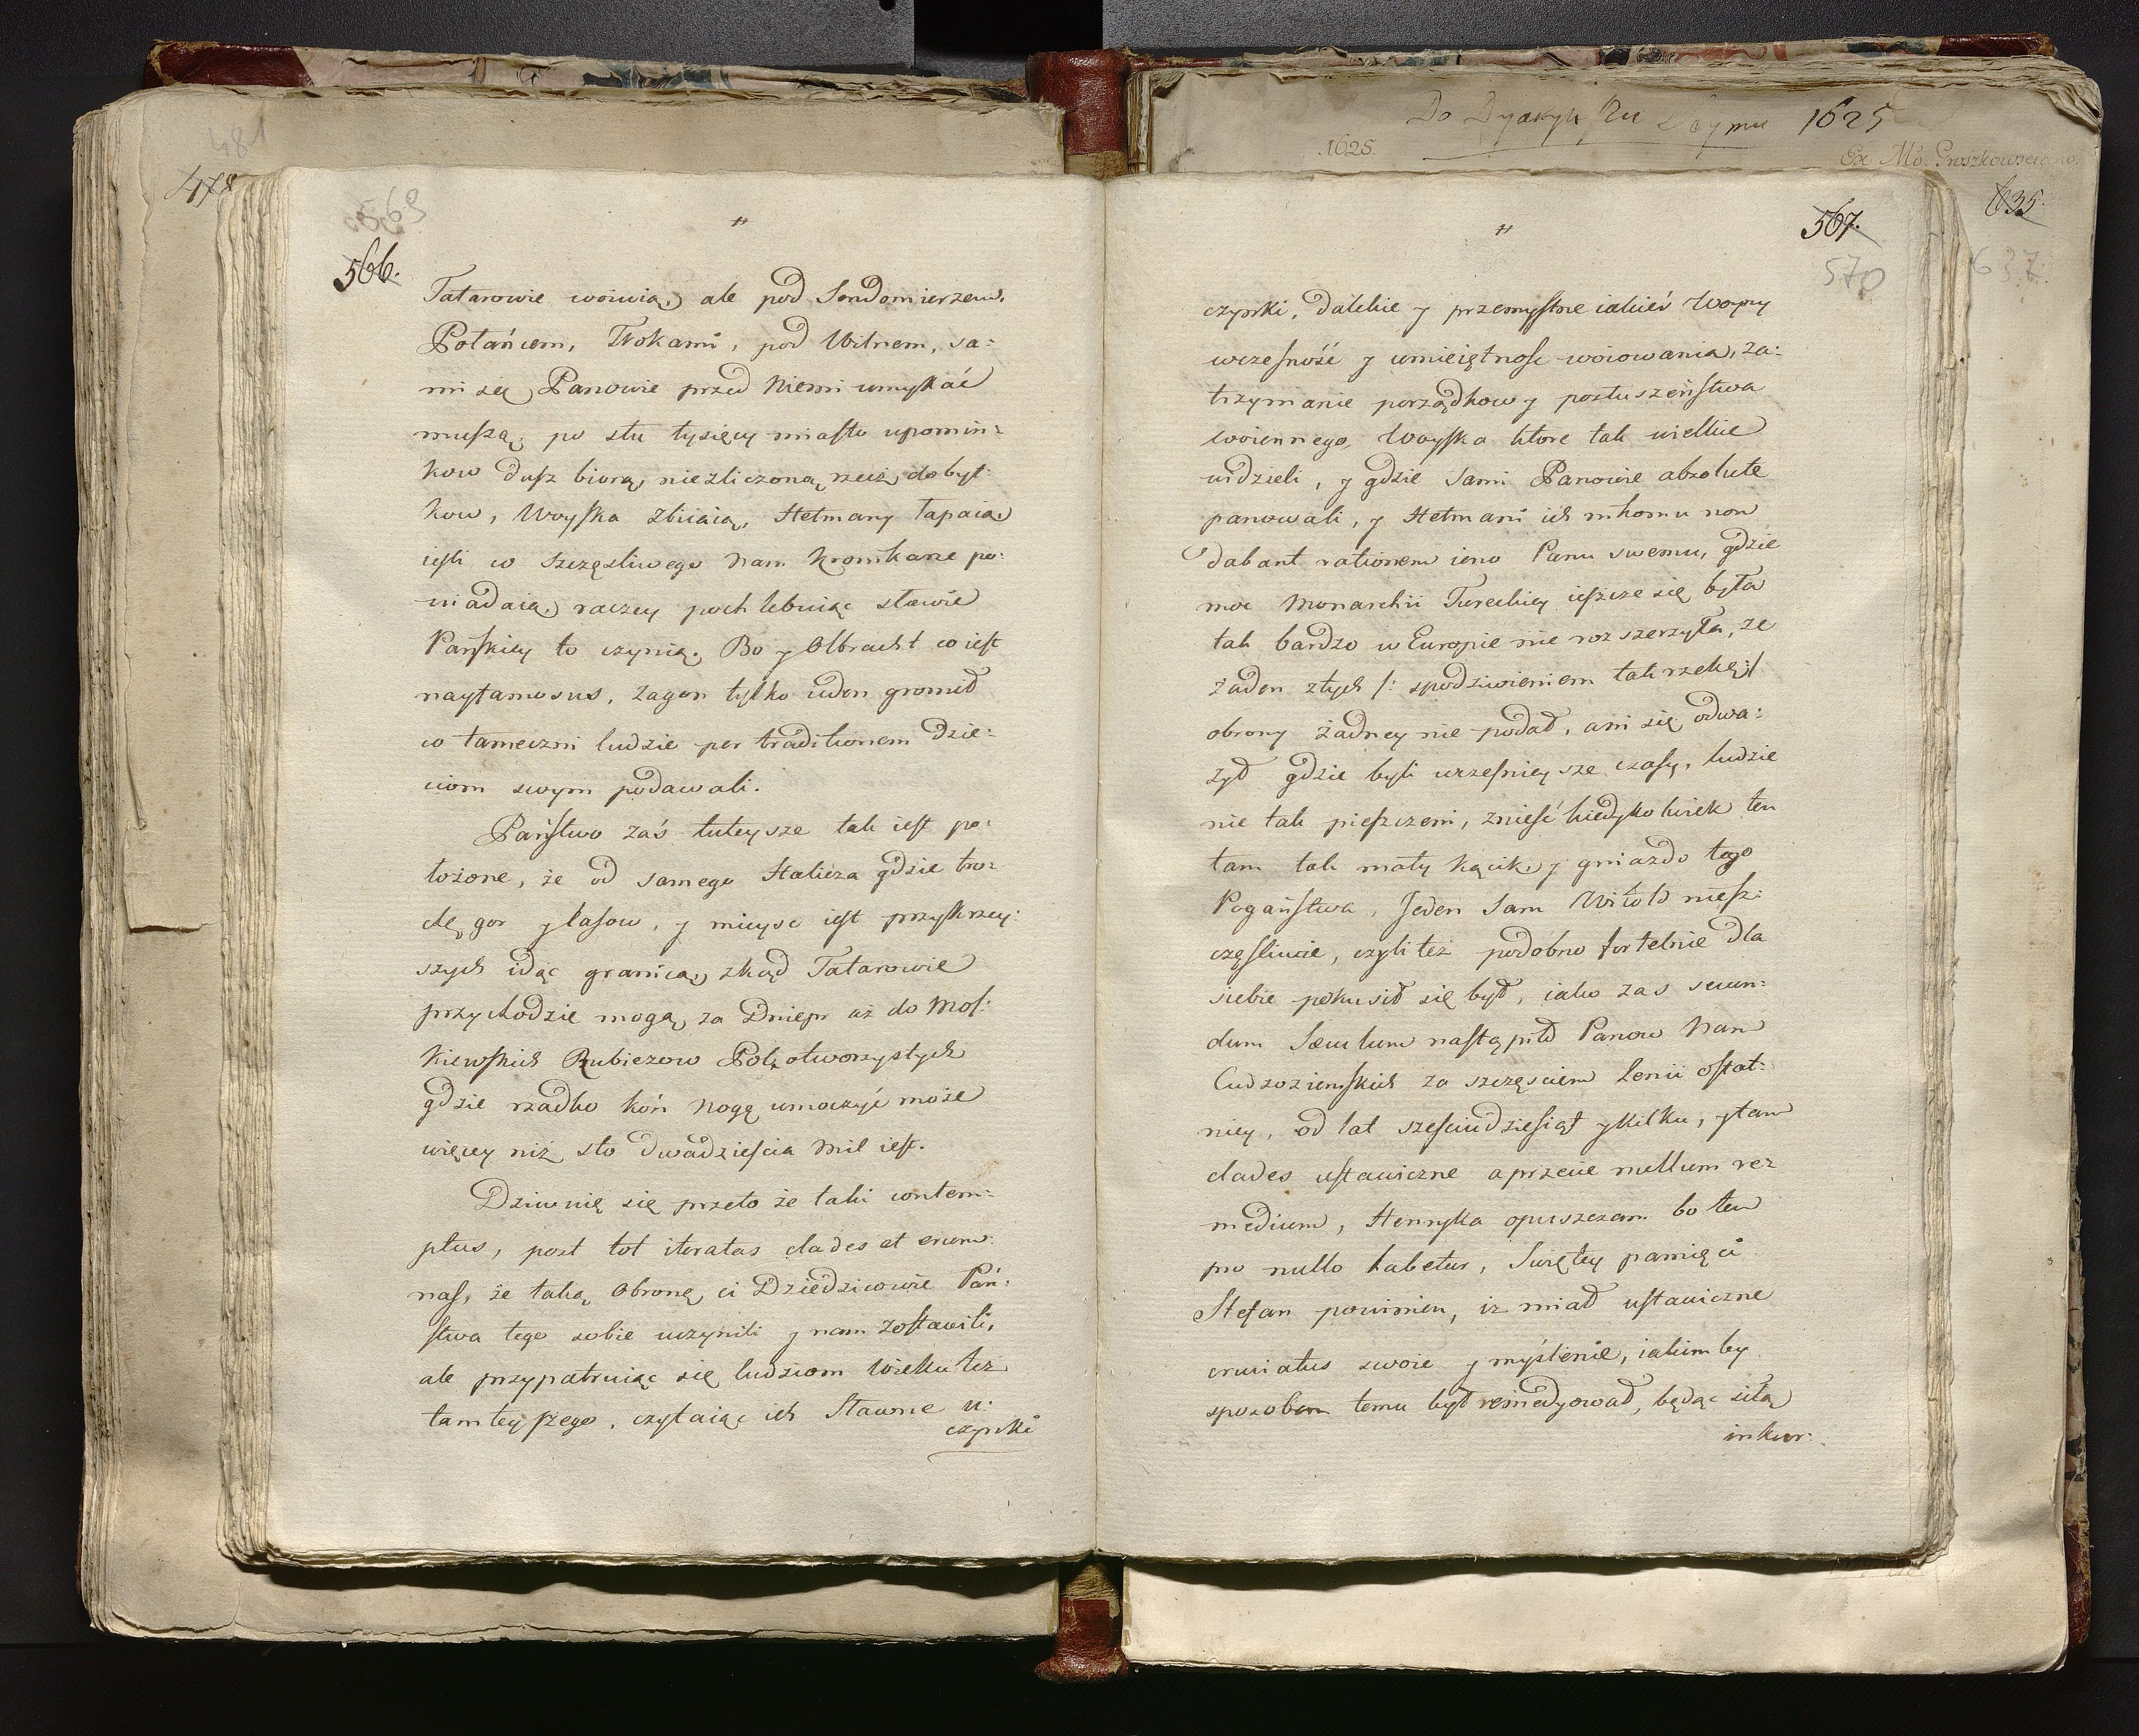 481
478
569
566.
"
Tatarowie woiuią, ale pod Sendomierzem,
Połańcem, Trokami, pod Wilnem, sa:
mi się Panowie przed niemi umykać
muszą, po stu tysięcy miasto upomin:
kow dusz biorą, niezliczoną rzecz dobyt:
kow, Woyska zbiiaią, Hetmany łapaią
iesli co szczęsliwego nam kronikarze po:
wiadaią, raczey pochlebuiąc sławie
Pańskiey to czynią. Bo y Olbracht co iest
nayfamosus, zagon tylko ieden gromił
co tameczni ludzie per traditionem dzie:
ciom swym podawali.
Państwo zaś tuteysze tak iest po:
łożone, że od samego Halicza gdzie tro:
chę gor y lasow, y mieysc iest przykrzey:
szych idąc granicą, zkąd Tatarowie
przychodzić mogą, za Dniepr aż do Mos:
kiewskich Rubieżow Pol otworzystych
gdzie rzadko koń nogę umoczyć może
więcey niż sto dwadziescia mil iest.
Dziwuię się przeto że taki contem:
ptus, post tot iteratas clades et erum:
nas, że taką obronę ci Dziedzicowie Pań:
stwa tego sobie uczynili y nam zostawili,
ale przypatruiąc się ludziom wieku też
tamteyszego, czytaiąc ich sławne u:
czynki
Do Dyaryuszu Seymu 1625
1625.
Ex Mo. Gruszkowsciano.
635.
637
567.
570
"
czynki, dalekie y przemysłne iakieś Woyny
wczesność y umieiętnosc woiowania, za:
trzymanie porządkow y posłuszeństwa
woiennego, Woyska ktore tak wielkie
widzieli, y gdzie sami Panowie absolute
panowali, y Hetmani ich nikomu non
dabant rationem ieno Panu swemu, gdzie
moc Monarchii Tureckiey ieszcze się była
tak bardzo w Europie nie rozszerzyła, ze
żaden z tych /: z podziwieniem tak rzekę :/
obrony żadney nie podał, ani się odwa:
żył gdzie byli wczesnieysze czasy, ludzie
nie tak pieszczeni, znieść kiedykolwiek ten
tam tak mały kącik, y gniazdo tego
Pogaństwa, Jeden sam Witold niesz:
częsliwie, czyli też podobno fortelnie dla
siebie pokusił się był, iako zas secun:
dum Sæculum nastąpił Panow nam
Cudzoziemskich za szczęsciem Lenii ostat:
niey, od lat szesciudziesiąt y kilku, y tam
clades ustawiczne a przecie nullum re:
medium, Henryka opuszczam bo ten
pro nullo habetur, Swiętey pamięci
Stefan powinien, iz miał ustawiczne
cruciatus swoie y myślenie, iakimby
sposobem temu był remedyował, będąc siłą
inkur: